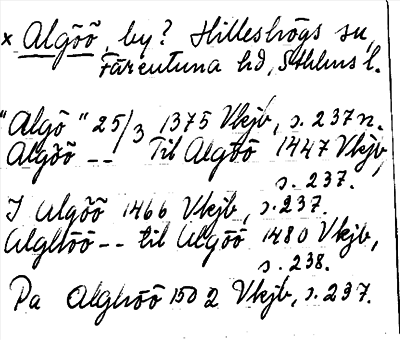 × Algöö, by? Hilleshögs sn,
Färentuna hd, Sthlms l.
"Algö" 25/3 1375 Vkjb, s. 237 n.
Algöö -- Til Algöö 1447 Vkjb,
s. 237.
I Algöö 1466 Vkjb, s. 237.
Alghöö -- til Algöö 1480 Vkjb,
s. 238.
Pa Alghöö 1502 Vkjb, s. 237.